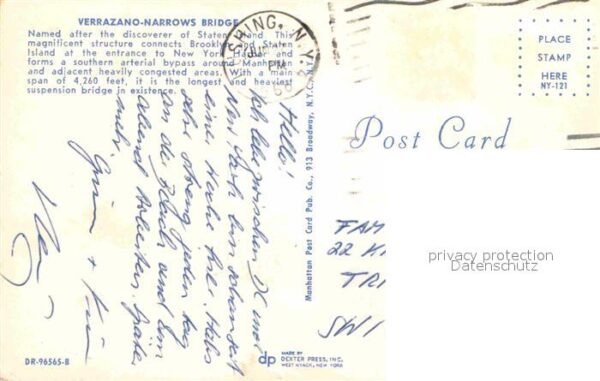 VERRAZANO-NARROWS BRIDGE
Named after the discoverer of Staten Island. This
magnificent structure connects Brooklyn and Staten
Island at the entrance to New York Harbor and
forms a southern arterial bypass around Manhattan
and adjacent heavily congested areas. With a main
span of 4,260 feet, it is the longest and heaviest
suspension bridge in existence.
SHING, N.Y.
PM
PLACE
STAMP
HERE
NY-121
Post Card
Manhattan Post Card Pub. Co., 913 Broadway, N.Y.C., N.Y.
Hello!
Ich bin zwischen DC und
New York bin schon seit
einer Woche hier. Habe
sehr streng jeden Tag
in die Schule und am
abend arbeiten. Später
mehr.
Gruss + Kuss
FAM
22 K
TR
SWI
privacy protection
Datenschutz
dp
MADE BY
DEXTER PRESS, INC.
WEST NYACK, NEW YORK
DR-96565-B